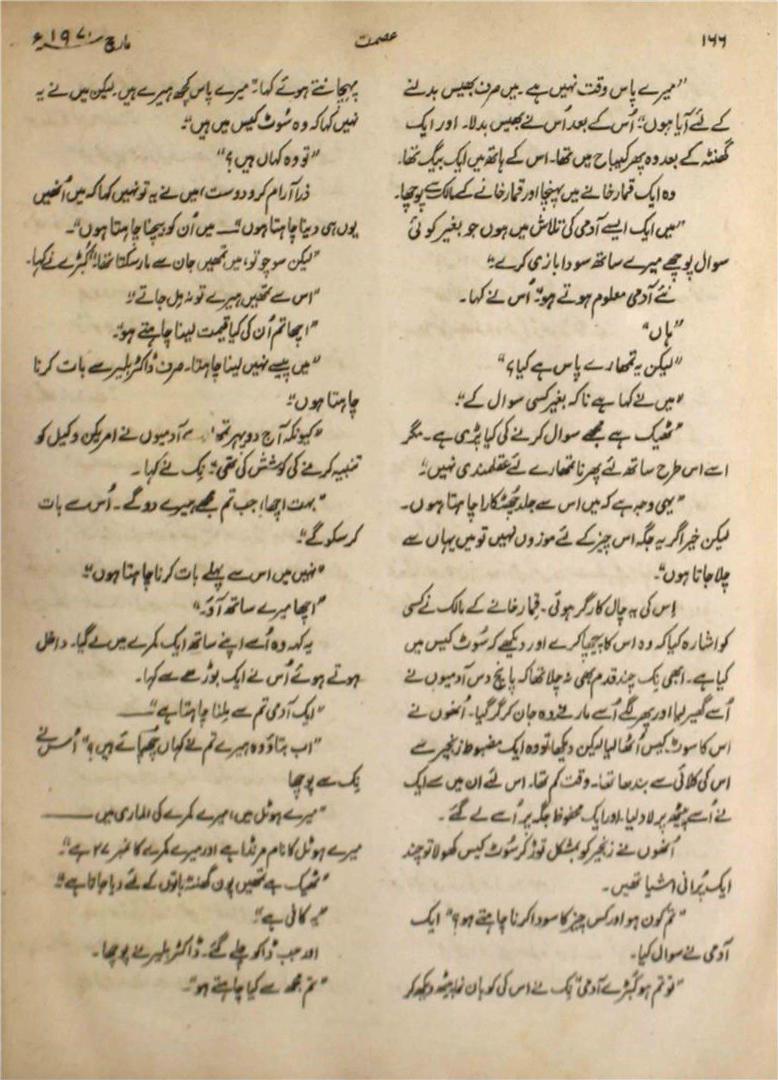 ۱۶۶
عصمت
مارچ ۱۹۷۰ء
”میرے پاس وقت نہیں ہے۔ میں صرف بھیس بدلنے
کے لئے آیا ہوں“۔ اُس کے بعد اُس نے بھیس بدلا۔ اور ایک
گھنٹہ کے بعد وہ پھر کیہباح میں تھا۔ اس کے ہاتھ میں ایک بیگ تھا۔
وہ ایک قمار خانے میں پہنچا اور قمار خانے کے مالک سے پوچھا۔
”میں ایک ایسے آدمی کی تلاش میں ہوں جو بغیر کوئی
سوال پوچھے میرے ساتھ سودا بازی کرے“
نئے آدمی معلوم ہوتے ہو“۔ اُس نے کہا۔
”ہاں“
”لیکن یہ تمھارے پاس ہے کیا؟“
”میں نے کہا ہے ناکہ بغیر کسی سوال کے“۔
”ٹھیک ہے مجھے سوال کرنے کی کیا پڑی ہے۔ مگر
اسے اس طرح ساتھ لئے پھرنا تمھارے لئے عقلمندی نہیں“
”یہی وجہ ہے کہ میں اس سے جلد چھٹکارا چاہتا ہوں۔
لیکن خیر اگر یہ جگہ اس چیز کے لئے موزوں نہیں تو میں یہاں سے
چلا جاتا ہوں“۔
اس کی یہ چال کارگر ہوئی۔ قمار خانے کے مالک نے کسی
کو اشارہ کیا کہ وہ اس کا پیچھا کرے اور دیکھے کہ سُوٹ کیس میں
کیا ہے۔ ابھی نِک چند قدم بھی نہ چلا تھا کہ پانچ دس آدمیوں نے
اُسے گھیر لیا اور پھر لگے اُسے مارنے وہ جان کر گر گیا۔ اُنھوں نے
اس کا سوٹ کیس اُٹھا لیا لیکن دیکھا تو وہ ایک مضبوط زنجیر سے
اس کی کلائی سے بندھا تھا۔ وقت کم تھا۔ اس لئے ان میں سے ایک
نے اُسے پیٹھ پر لاد لیا۔ اور ایک محفوظ جگہ پر اُسے لے گئے۔
اُنھوں نے زنجیر کو بمشکل توڑ کر سُوٹ کیس کھولا تو چند
ایک پُرانی اشیا تھیں۔
”تم کون ہو اور کس چیز کا سودا کرنا چاہتے ہو؟“ ایک
آدمی نے سوال کیا۔
”تو تم ہو کبڑے آدمی“ نِک نے اس کی کوہان نما پیٹھ دیکھ کر
پہچانتے ہوئے کہا۔ ”میرے پاس کچھ ہیرے ہیں۔ لیکن میں نے یہ
نہیں کہا کہ وہ سُوٹ کیس میں ہیں“۔
”تو وہ کہاں ہیں؟“
ذرا آرام کرو دوست، میں نے یہ تو نہیں کہا کہ میں اُنھیں
یوں ہی دینا چاہتا ہوں“ــ میں اُن کو بیچنا چاہتا ہوں“۔
”لیکن سوچو تو، میں تمھیں جان سے مار سکتا تھا“ کبڑے نے کہا۔
”اس سے تمھیں ہیرے تو نہ مل جاتے“
”اچھا تم اُن کی کیا قیمت لینا چاہتے ہو“۔
”میں پیسے نہیں لینا چاہتا۔ صرف ڈاکٹر بلیر سے بات کرنا
چاہتا ہوں“۔
”کیونکہ آج دوپہر آدمیوں نے امریکن وکیل کو
تنبیہ کرنے کی کوشش کی تھی“ نِک نے کہا۔
”بہت اچھا، جب تم مجھے ہیرے دو گے۔ اُس سے بات
کر سکو گے“۔
”نہیں میں اس سے پہلے بات کرنا چاہتا ہوں“۔
”اچھا میرے ساتھ آؤ۔“
یہ کہہ وہ اُسے اپنے ساتھ ایک کمرے میں لے گیا۔ داخل
ہوتے ہوئے اُس نے ایک بوڑھے سے کہا۔
”ایک آدمی تم سے ملنا چاہتا ہے“ــــ
”اب بتاؤ وہ ہیرے تم نے کہاں چھپائے ہیں؟“ اُس نے
نِک سے پوچھا
”میرے ہوٹل میں، میرے کمرے کی الماری میں ــــ
میرے ہوٹل کا نام مرنڈا ہے اور میرے کمرے کا نمبر ۲۷ ہے“۔
”ٹھیک ہے تمھیں پون گھنٹہ باتوں کے لئے دیا جاتا ہے“
”یہ کافی ہے“۔
اور جب ڈاکو چلے گئے۔ ڈاکٹر بلیر نے پوچھا۔
”تم مجھ سے کیا چاہتے ہو“۔